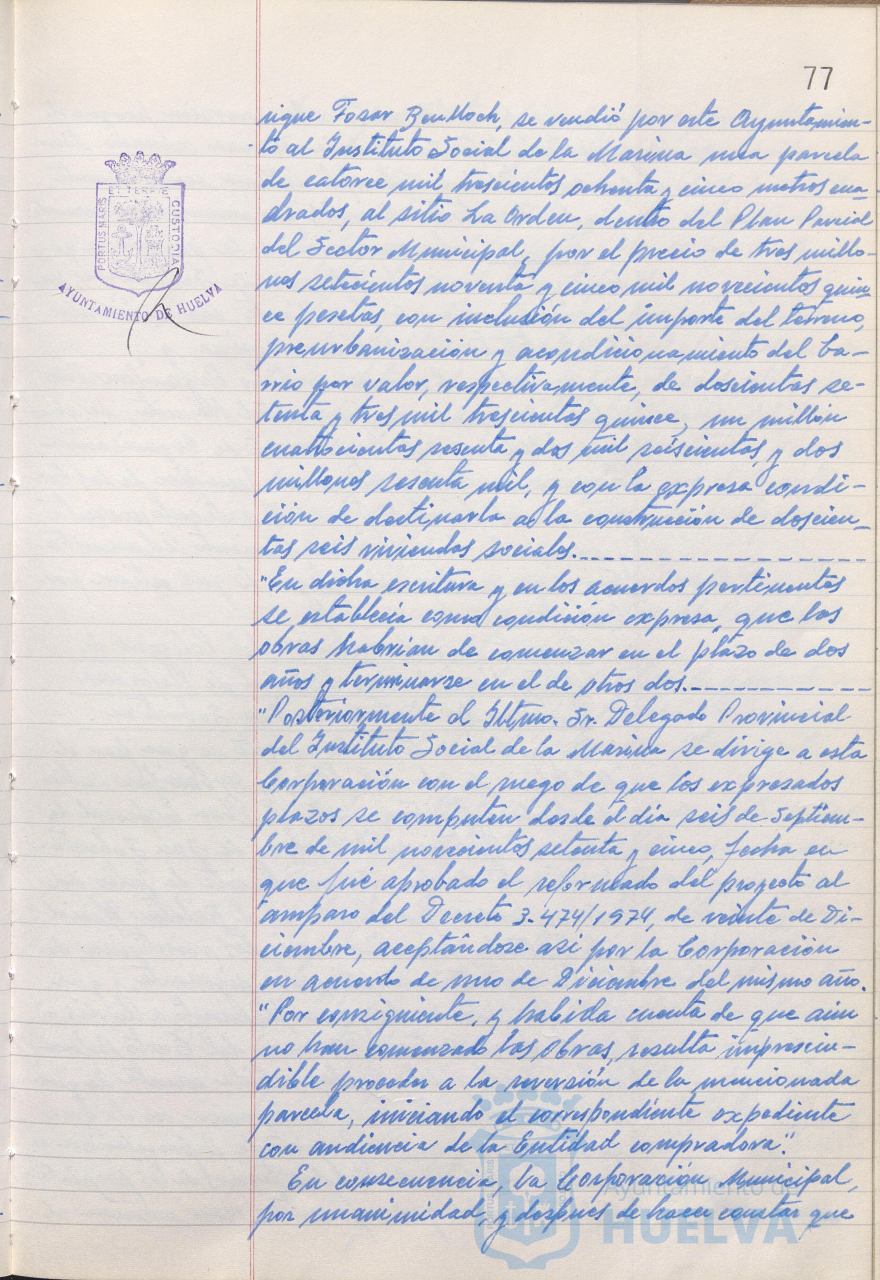 77
rique Fosar Benlloch, se vendió por este Ayuntamien-
to al Instituto Social de la Marina una parcela
de catorce mil trescientos ochenta y cinco metros cua-
drados, al sitio La Orden, dentro del Plan Parcial
del Sector Municipal, por el precio de tres millo-
nes setecientos noventa y cinco mil novecientos quin-
ce pesetas, con inclusión del importe del terreno,
preurbanización y acondicionamiento del ba-
rrio por valor, respectivamente, de doscientas se-
tenta y tres mil trescientas quince, un millón
cuatrocientas sesenta y dos mil seiscientas, y dos
millones sesenta mil, y con la expresa condi-
ción de destinarla a la construcción de doscien-
tas seis viviendas sociales.
"En dicha escritura y en los acuerdos pertinentes
se establecía como condición expresa, que las
obras habrían de comenzar en el plazo de dos
años y terminarse en el de otros dos.
"Posteriormente el Iltmo. Sr. Delegado Provincial
del Instituto Social de la Marina se dirige a esta
Corporación con el ruego de que los expresados
plazos se computen desde el día seis de Septiem-
bre de mil novecientos setenta y cinco, fecha en
que fué aprobado el reformado del proyecto al
amparo del Decreto 3.474/1974, de veinte de Di-
ciembre, aceptándose así por la Corporación
en acuerdo de uno de Diciembre del mismo año.
"Por consiguiente, y habida cuenta de que aún
no han comenzado las obras, resulta imprescin-
dible proceder a la reversión de la mencionada
parcela, iniciando el correspondiente expediente
con audiencia de la Entidad compradora".
En consecuencia, la Corporación Municipal,
por unanimidad, y después de hacer constar que
PORTUS MARIS ET TERRAE CUSTODIA
AYUNTAMIENTO DE HUELVA
Ayuntamiento de
HUELVA